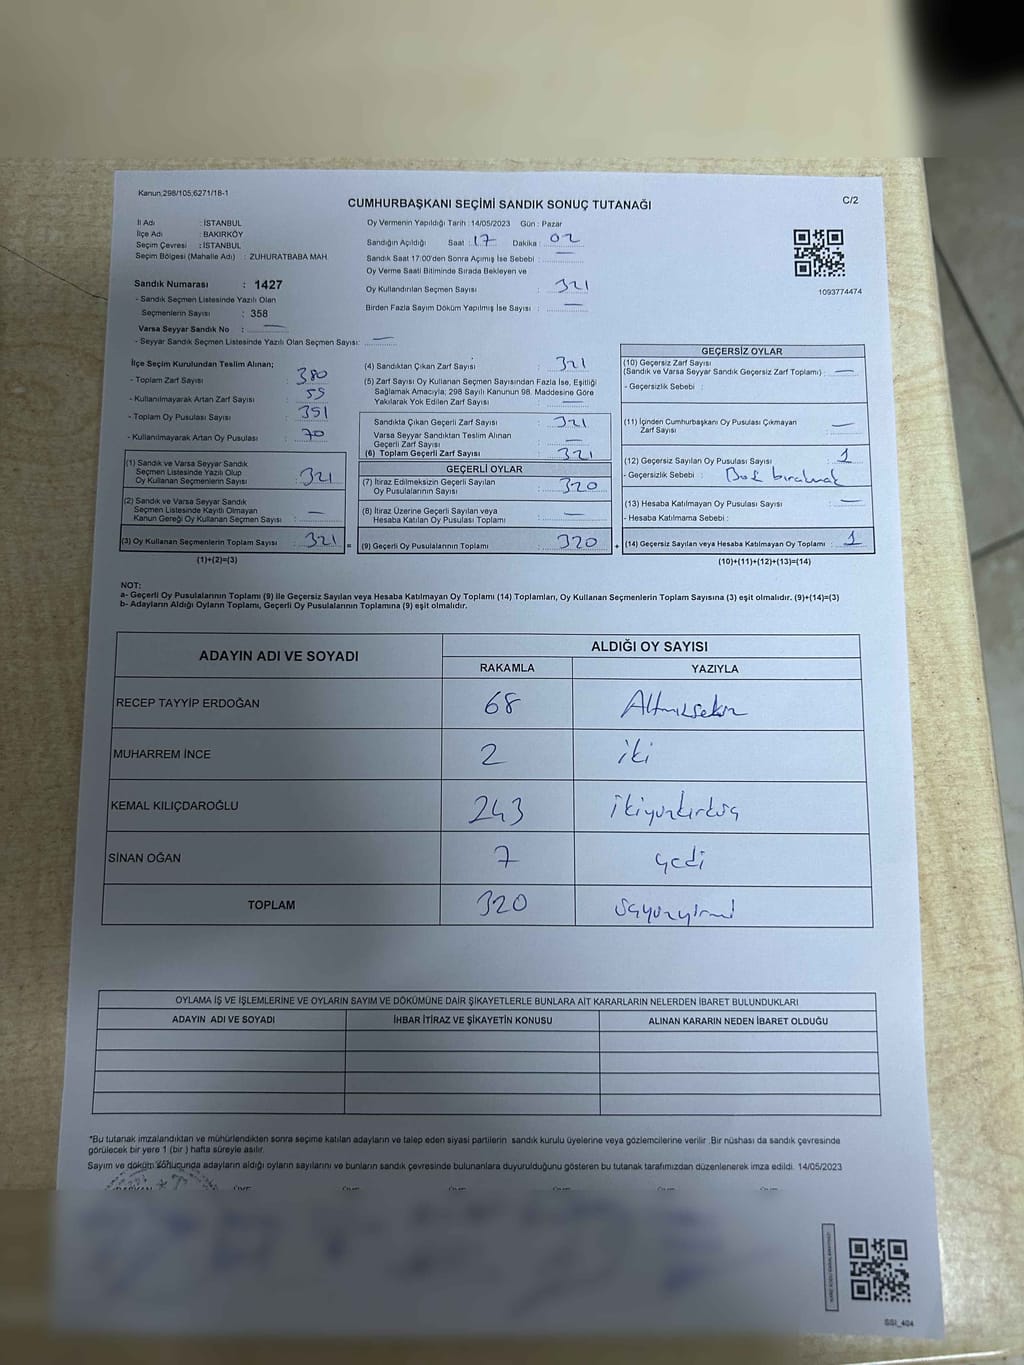 Kanun,298/105;6271/18-1
CUMHURBAŞKANI SEÇİMİ SANDIK SONUÇ TUTANAĞI
C/2
İl Adı : İSTANBUL
İlçe Adı : BAKIRKÖY
Seçim Çevresi : İSTANBUL
Seçim Bölgesi (Mahalle Adı) : ZUHURATBABA MAH.
Sandık Numarası : 1427
- Sandık Seçmen Listesinde Yazılı Olan
Seçmenlerin Sayısı : 358
Varsa Seyyar Sandık No : —
- Seyyar Sandık Seçmen Listesinde Yazılı Olan Seçmen Sayısı: —
Oy Vermenin Yapıldığı Tarih : 14/05/2023 Gün : Pazar
Sandığın Açıldığı Saat : 17 Dakika : 02
Sandık Saat 17:00'den Sonra Açımış İse Sebebi : —
Oy Verme Saati Bitiminde Sırada Bekleyen ve
Oy Kullandırılan Seçmen Sayısı : 321
Birden Fazla Sayım Döküm Yapılmış İse Sayısı : —
1093774474
İlçe Seçim Kurulundan Teslim Alınan;
- Toplam Zarf Sayısı : 380
- Kullanılmayarak Artan Zarf Sayısı : 55
- Toplam Oy Pusulası Sayısı : 351
- Kullanılmayarak Artan Oy Pusulası : 70
(1) Sandık ve Varsa Seyyar Sandık
Seçmen Listesinde Yazılı Olup
Oy Kullanan Seçmenlerin Sayısı : 321
(2) Sandık ve Varsa Seyyar Sandık
Seçmen Listesinde Kayıtlı Olmayan
Kanun Gereği Oy Kullanan Seçmen Sayısı : —
(3) Oy Kullanan Seçmenlerin Toplam Sayısı : 321 =
(1)+(2)=(3)
(4) Sandıktan Çıkan Zarf Sayısı : 321
(5) Zarf Sayısı Oy Kullanan Seçmen Sayısından Fazla İse, Eşitliği
Sağlamak Amacıyla; 298 Sayılı Kanunun 98. Maddesine Göre
Yakılarak Yok Edilen Zarf Sayısı : —
Sandıkta Çıkan Geçerli Zarf Sayısı : 321
Varsa Seyyar Sandıktan Teslim Alınan
Geçerli Zarf Sayısı : —
(6) Toplam Geçerli Zarf Sayısı : 321
GEÇERLİ OYLAR
(7) İtiraz Edilmeksizin Geçerli Sayılan
Oy Pusulalarının Sayısı : 320
(8) İtiraz Üzerine Geçerli Sayılan veya
Hesaba Katılan Oy Pusulası Toplamı : —
(9) Geçerli Oy Pusulalarının Toplamı : 320 +
GEÇERSİZ OYLAR
(10) Geçersiz Zarf Sayısı
(Sandık ve Varsa Seyyar Sandık Geçersiz Zarf Toplamı) : —
- Geçersizlik Sebebi :
(11) İçinden Cumhurbaşkanı Oy Pusulası Çıkmayan
Zarf Sayısı : —
(12) Geçersiz Sayılan Oy Pusulası Sayısı : 1
- Geçersizlik Sebebi : Boş bırakmak
(13) Hesaba Katılmayan Oy Pusulası Sayısı : —
- Hesaba Katılmama Sebebi :
(14) Geçersiz Sayılan veya Hesaba Katılmayan Oy Toplamı : 1
(10)+(11)+(12)+(13)=(14)
NOT:
a- Geçerli Oy Pusulalarının Toplamı (9) ile Geçersiz Sayılan veya Hesaba Katılmayan Oy Toplamı (14) Toplamları, Oy Kullanan Seçmenlerin Toplam Sayısına (3) eşit olmalıdır. (9)+(14)=(3)
b- Adayların Aldığı Oyların Toplamı, Geçerli Oy Pusulalarının Toplamına (9) eşit olmalıdır.
ADAYIN ADI VE SOYADI ALDIĞI OY SAYISI
RAKAMLA YAZIYLA
RECEP TAYYİP ERDOĞAN 68 Altmışsekiz
MUHARREM İNCE 2 iki
KEMAL KILIÇDAROĞLU 243 ikiyüzkırküç
SİNAN OĞAN 7 yedi
TOPLAM 320 üçyüzyirmi
OYLAMA İŞ VE İŞLEMLERİNE VE OYLARIN SAYIM VE DÖKÜMÜNE DAİR ŞİKAYETLERLE BUNLARA AİT KARARLARIN NELERDEN İBARET BULUNDUKLARI
ADAYIN ADI VE SOYADI İHBAR İTİRAZ VE ŞİKAYETİN KONUSU ALINAN KARARIN NEDEN İBARET OLDUĞU
*Bu tutanak imzalandıktan ve mühürlendikten sonra seçime katılan adayların ve talep eden siyasi partilerin sandık kurulu üyelerine veya gözlemcilerine verilir .Bir nüshası da sandık çevresinde
görülecek bir yere 1 (bir ) hafta süreyle asılır.
Sayım ve döküm sonucunda adayların aldığı oyların sayılarını ve bunların sandık çevresinde bulunanlara duyurulduğunu gösteren bu tutanak tarafımızdan düzenlenerek imza edildi. 14/05/2023
SSI_404